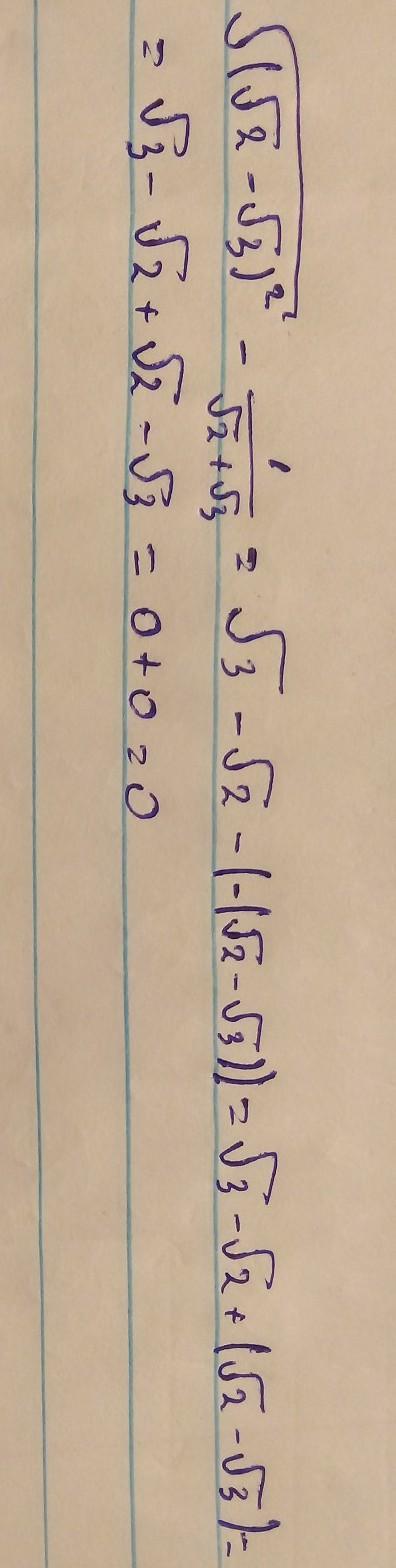 √(√2 - √3)² - 1/(√2 + √3) = √3 - √2 - (-(√2 - √3)) = √3 - √2 + (√2 - √3) =
= √3 - √2 + √2 - √3 = 0 + 0 = 0